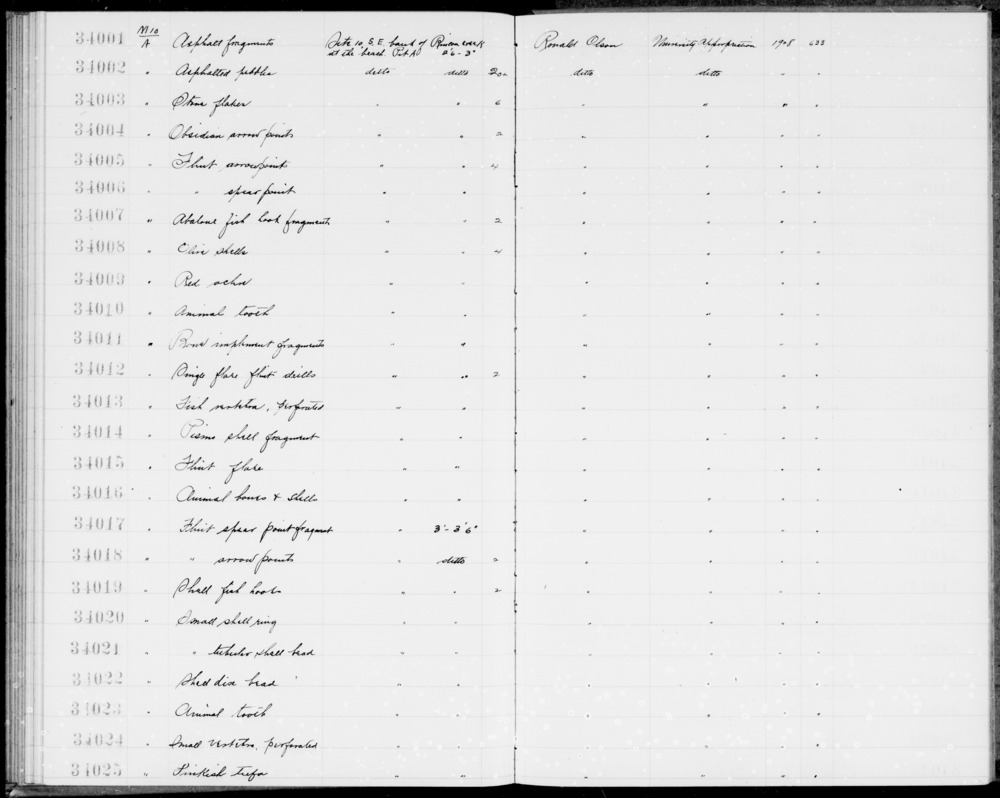 34001 M10 A Asphalt fragments Site 10, S.E. bank of Rincon creek at the beach. Pit A 2'6 - 3' Ronald Olson University Appropriation 633
34002 " Asphalted pebbles ditto ditto ditto ditto " "
34003 " Stone flakes " " 6 " " " "
34004 " Obsidian arrow points " " 2 " " " "
34005 " Flint arrowpoint " " 4 " " " "
34006 " " spear point " " " " " "
34007 " Abalone fish hook fragments " " 2 " " " "
34008 " Olive shells " " 4 " " " "
34009 " Red ochre " " " " " "
34010 " Animal tooth " " " " " "
34011 " Bone implement fragments " " " " " "
34012 " Single flake flint drills " " 2 " " " "
34013 " Fish vertebra, perforated " " " " " "
34014 " Pismo shell fragment " " " " " "
34015 " Flint flake " " " " " "
34016 " Animal bones & shells " " " " " "
34017 " Flint spear point fragment " 3' - 3'6" " " " "
34018 " " arrow points " ditto 2 " " " "
34019 " Shell fish hook " " 2 " " " "
34020 " Small shell ring " " " " " "
34021 " " tubular shell bead " " " " " "
34022 " Shell disc bead " " " " " "
34023 " Animal tooth " " " " " "
34024 " Small vertebra, perforated " " " " " "
34025 " Pinkish tufa " " " " " "